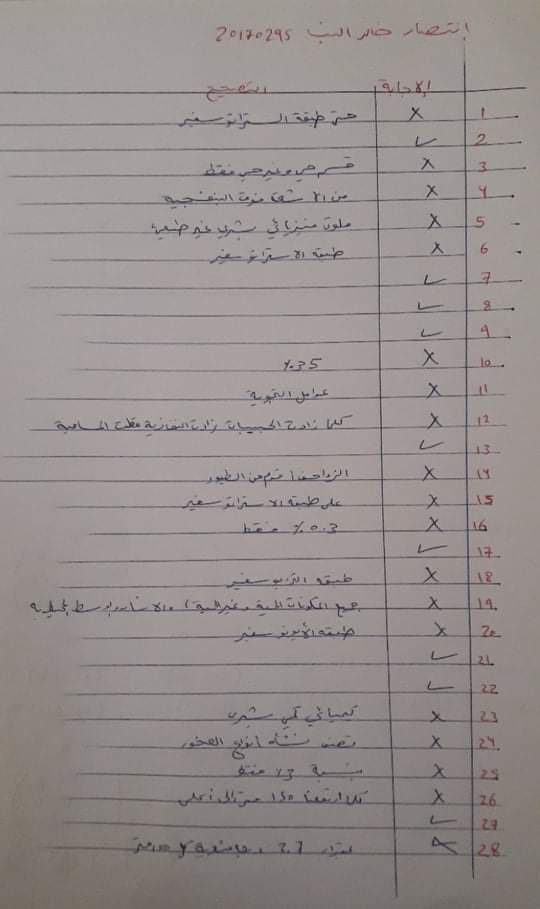 انتصار خالد 20170295
الإجابة التصحيح
1 X حتى طبقة الستراتوسفير
2 ✓
3 X قسم حي وغير حي فقط
4 X من الأشعة فوق البنفسجية
5 X ملوث فيزيائي بشري غير طبيعي
6 X طبقة الاستراتوسفير
7 ✓
8 ✓
9 ✓
10 X 35%
11 X عوامل التجوية
12 X كلما زادت الحبيبات زادت النفاذية وقلت المسامية
13 ✓
14 X الزواحف أقدم من الطيور
15 X على طبقة الاستراتوسفير
16 X 0.3% فقط
17 ✓
18 X طبقة التربوسفير
19 X جميع المكونات الحية وغير الحية
20 X طبقة الأيونوسفير
21 ✓
22 ✓
23 X كيميائي بشري
24 X نشأة أنواع الصخور
25 X نسبة 3% فقط
26 X كلما ارتفعنا 150 متر إلى أعلى
27 ✓
28 X